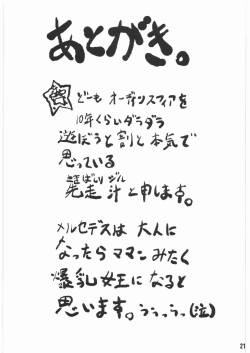 あとがき。
どーも オーディンスフィアを
10年くらいダラダラ
遊ぼうと割と本気で
思っている
先走 汁と申します。
メルセデスは 大人に
なったらママンみたく
爆乳女王になると
思います。うぅっうっ(泣)
21